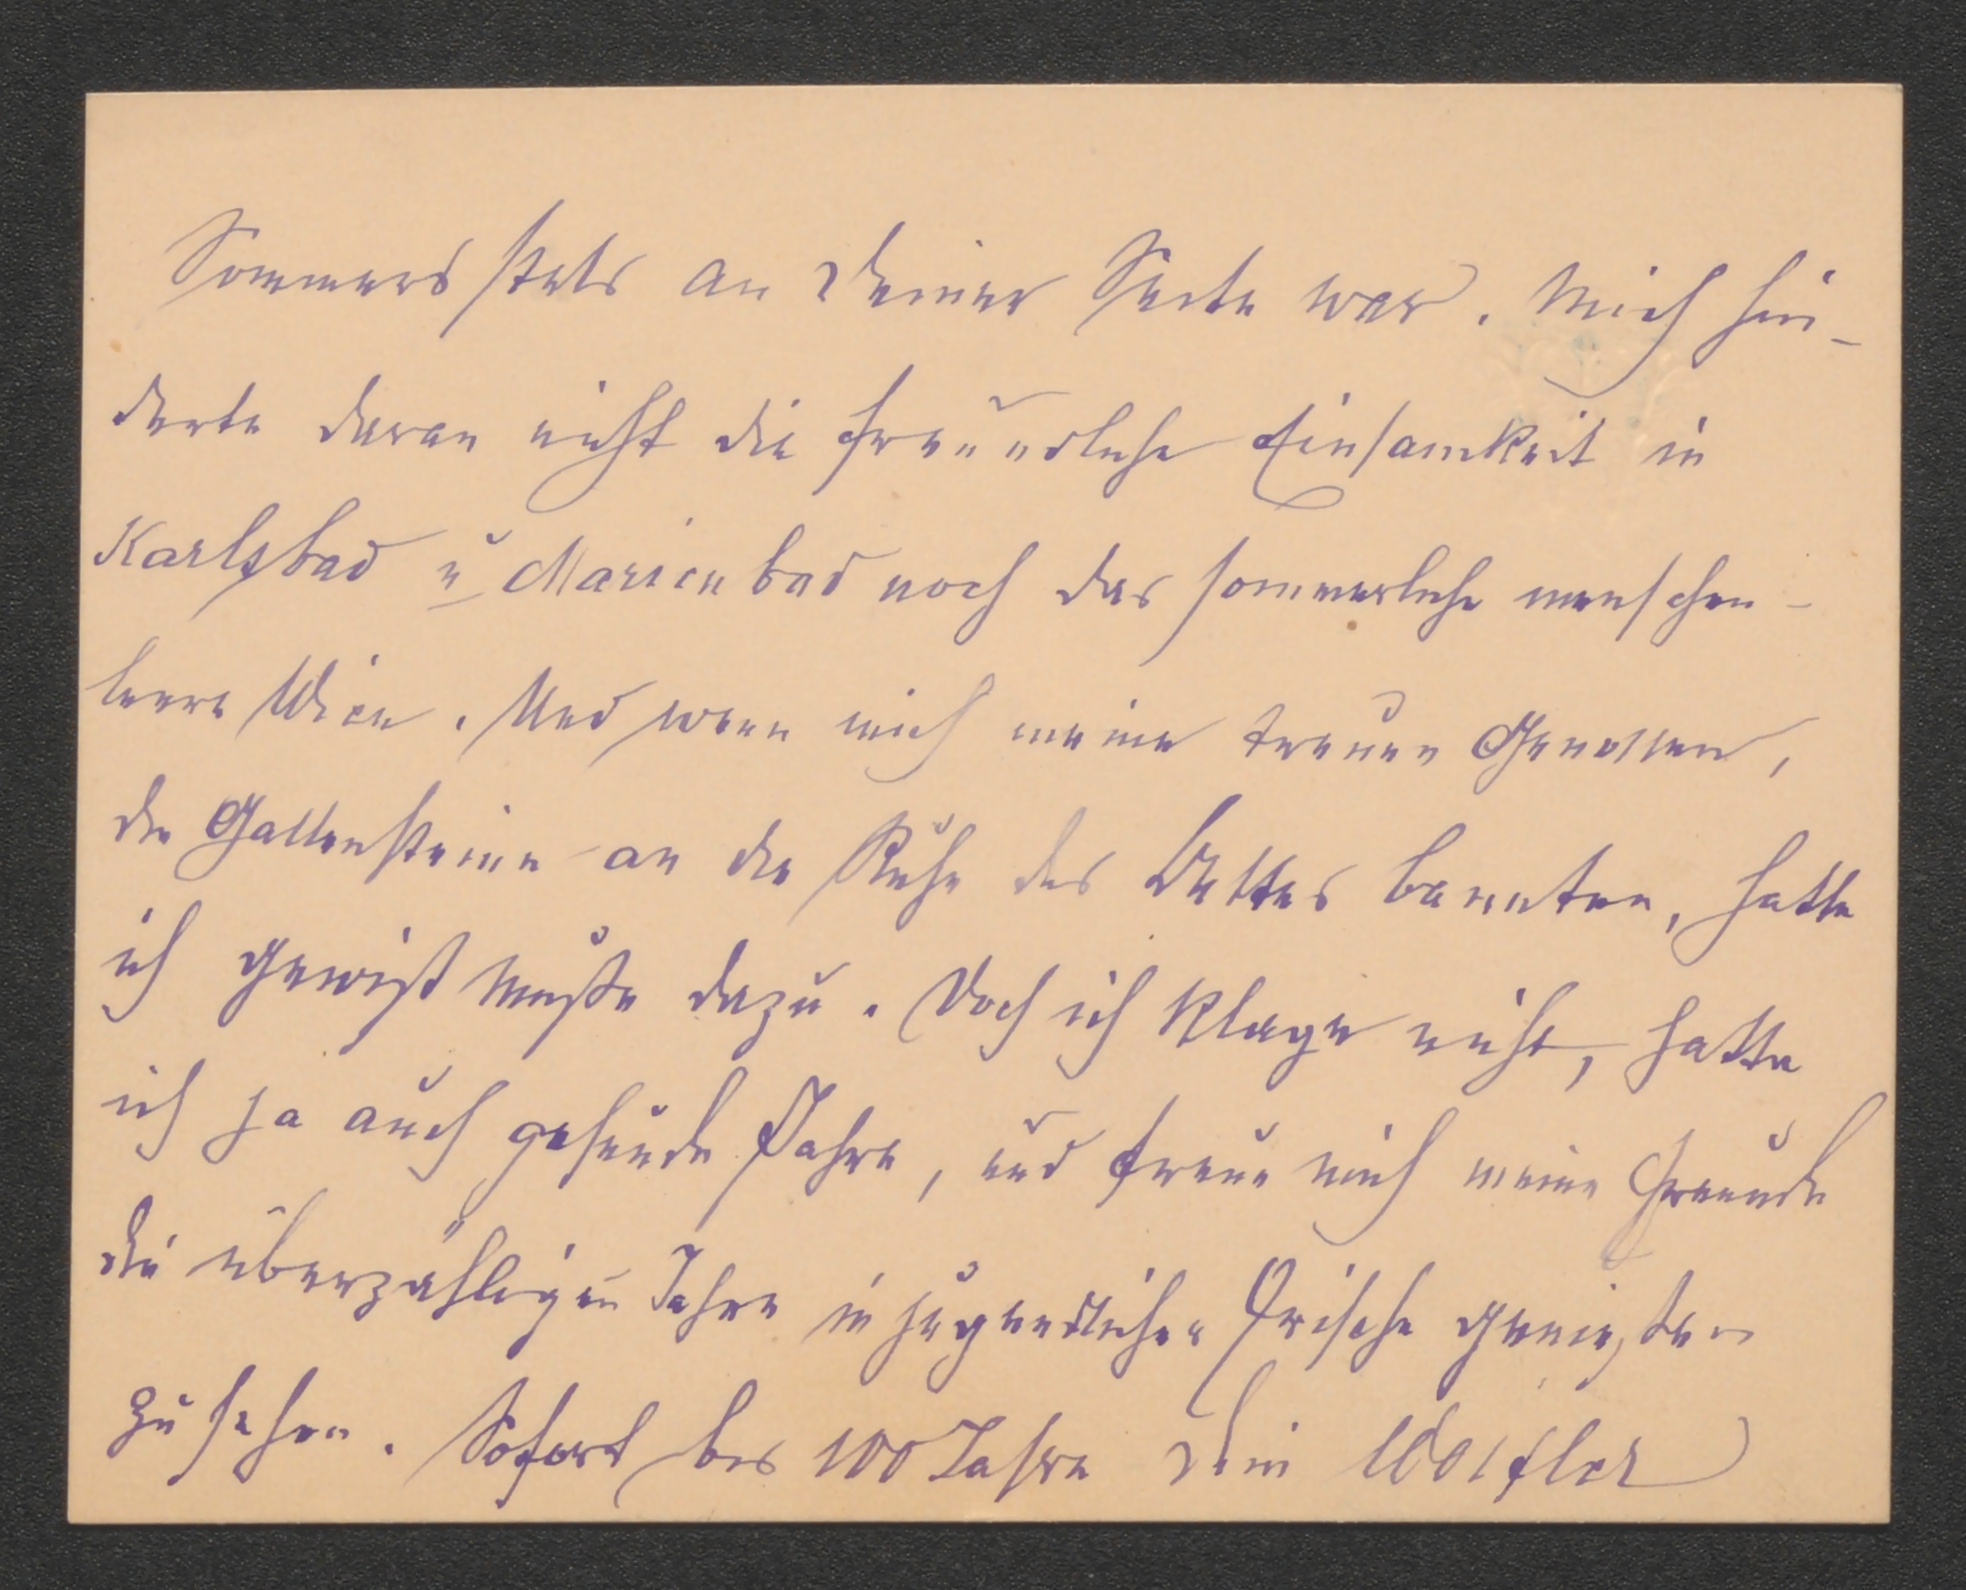 Sommers stets an Deiner Seite war. Mich hin-
derte daran nicht die freundliche Einsamkeit in
Karlsbad u Marienbad noch das sommerliche menschen-
leere Wien. Und wenn mich meine treuen Genossen,
die Gallensteine an die Ruhe des Bettes bannten, hatte
ich gewiß Muße dazu. Doch ich klage nicht, hatte
ich ja auch gesunde Jahre, und freue mich meine Freunde
die überzähligen Jahre in jugendlicher Frische genießen
zu sehen. Sofort bis 100 Jahre Dein Wölfler